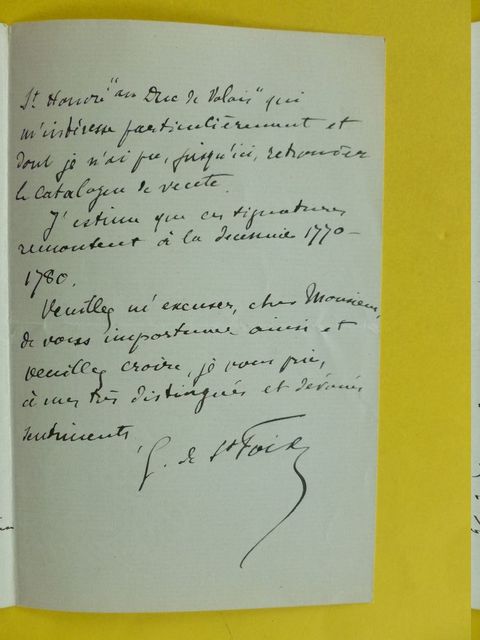 St Honoré "au Duc de Valois" qui
m'intéresse particulièrement et
dont je n'ai pu, jusqu'ici, retrouver
le catalogue de vente.
J'estime que ces signatures
remontent à la décennie 1770-
1780.
Veuillez m'excuser, cher Monsieur,
de vous importuner ainsi et
veuillez croire, je vous prie,
à mes très distingués et dévoués
sentiments
G. de St Foix